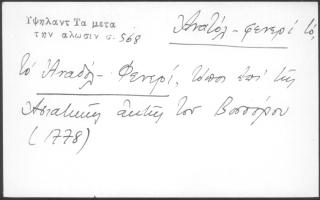 Ὑψηλαντ Τα μετα
την αλωσιν σ. 568
Ἀνατόλ - φενερί τό,
τό Ἀναδόλ - Φενερί, τόπος ἐπί τῆς
Ἀσιατικῆς ἀκτῆς τοῦ Βοσπόρου
(1778)